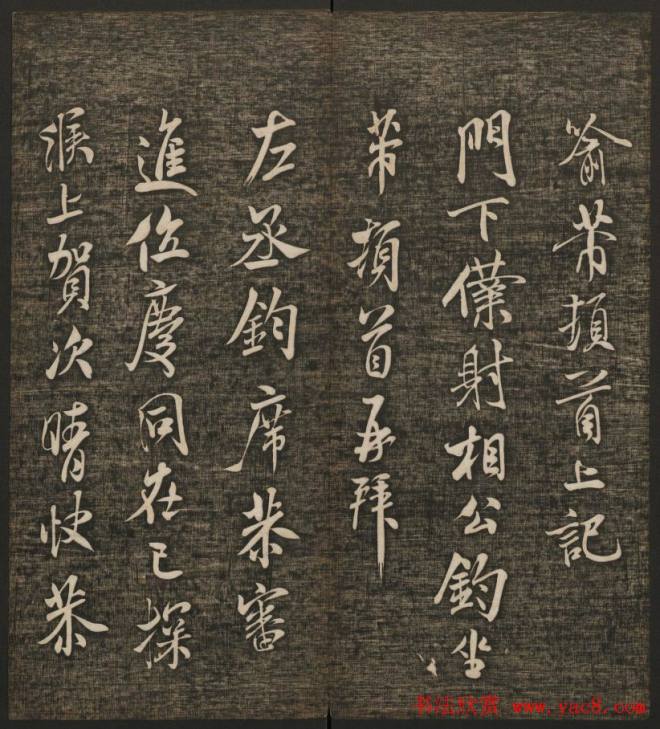 喻芾頓首上記
門下僕射相公鈞坐
芾頓首再拜
左丞鈞席恭審
進位慶同在己探
候上賀次晴快恭
书法欣赏 www.yac8.com